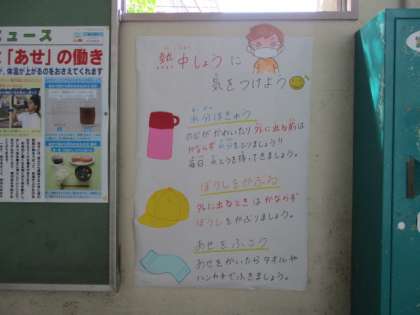 ュース
「あせ」の働き
、体温が上がるのをおさえてくれます
熱中しょうに
気をつけよう
水分ほきゅう
のどがかわいたり外に出る前は
かならず水分をとりましょう!!
毎日 水とうを持ってきましょう。
ぼうしをかぶる
外に出るときはかならず
ぼうしをかぶりましょう。
あせをふこう
あせをかいたらタオルや
ハンカチでふきましょう。